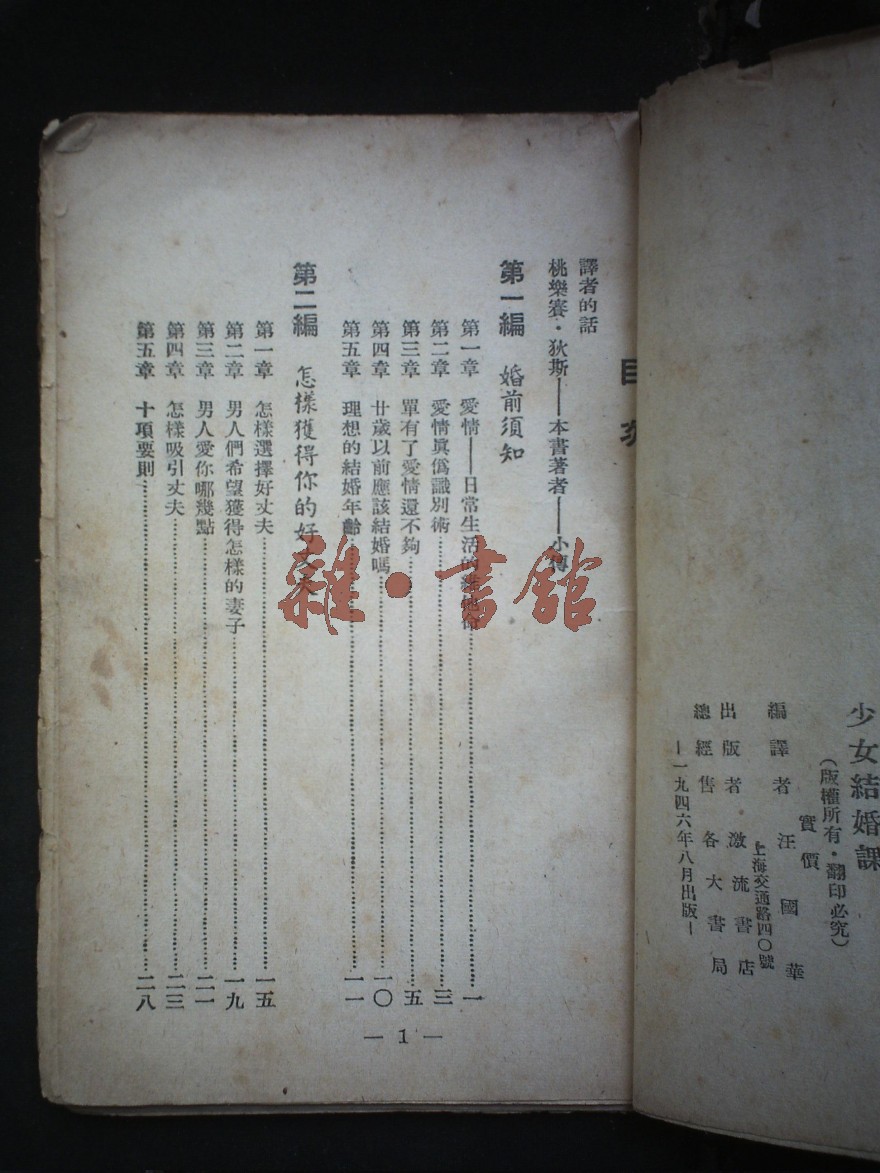 少女結婚課
（版權所有·翻印必究）
實價
編譯者 汪國華
上海交通路四〇號
出版者 激流書店
總經售 各大書局
—一九四六年八月出版—
目次
譯者的話
桃樂賽·狄斯——本書著者——小傳
第一編 婚前須知
第一章 愛情——日常生活的 一
第二章 愛情眞僞識別術 三
第三章 單有了愛情還不夠 五
第四章 廿歲以前應該結婚嗎 一〇
第五章 理想的結婚年齡 一一
第二編 怎樣獲得你的好丈夫
第一章 怎樣選擇好丈夫 一五
第二章 男人們希望獲得怎樣的妻子 一九
第三章 男人愛你哪幾點 二一
第四章 怎樣吸引丈夫 二三
第五章 十項要則 二八
— 1 —
雜·書館